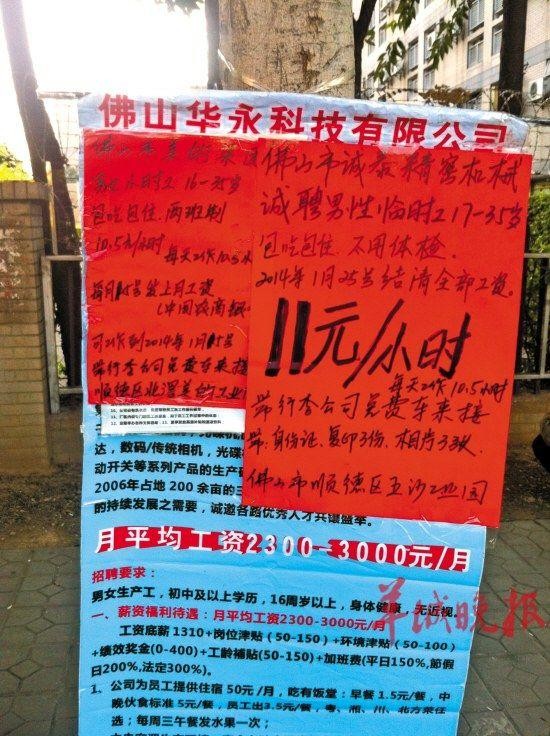 佛山华永科技有限公司
佛山市美的
小时工 16-35岁
包吃包住. 两班制
10.5元/小时 每天工作10.5小时
每月15号发上月工资
(中国农商银
可工作到2014年1月15号
带行李公司免费车来接
顺德区北滘美的工业
佛山市诚泰精密机械
诚聘男性临时工17-35岁
包吃包住. 不用体检.
2014年1月25号结清全部工资。
11元/小时
每天工作10.5小时
带行李公司免费车来接
带:身份证、复印3份、相片3张
佛山市顺德区五沙工业园
达，数码/传统相机，光碟
动开关等系列产品的生产研
2006年占地 200 余亩的三
的持续发展之需要，诚邀各路优秀人才共襄盛举。
月平均工资2300-3000元/月
招聘要求：
男女生产工，初中及以上学历，16周岁以上，身体健康，无近视。
一、薪资福利待遇：月平均工资2300-3000元/月
工资底薪 1310+岗位津贴（50-150）+环境津贴（50-100）
+绩效奖金(0-400)+工龄补贴(50-150)+加班费(平日150%,節假
日200%,法定300%)。
1、公司为员工提供住宿 50元/月，吃有饭堂：早餐 1.5元/餐，中
晚伙食标准 5元/餐，员工出3.5元/餐，粤、湘、川、北方菜任
选；每周三午餐发水果一次；
羊城晚报